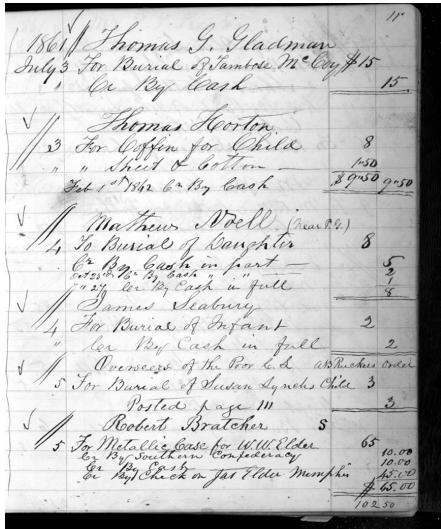 11
1861 Thomas G. Gladman
July 3 For Burial of Tambose McCoy $15
" Cr By Cash 15
Thomas Horton
3 For Coffin for Child 8
" " Sheet & Cotton 1.50
Feb 1st 1862 Cr By Cash $9.50 9.50
Mathews Noell (near P.G.)
4 To Burial of Daughter 8
Cr By Cash in part 5
Oct 25 Cr By Cash " " 2
" 27 Cr By Cash in full 1
8
James Seabury
4 For Burial of Infant 2
" Cr By Cash in full 2
Overseers of the Poor C.L AB Ruckers Order
5 For Burial of Susan Lynchs Child 3
Posted page 111 3
Robert Bratcher S
5 For Metallic Case for W.W. Elder 65
Cr By Southern Confederacy 10.00
Cr By Cash 10.00
Cr By Check on Jas Elder Memphis 45.00
$65.00
102 50